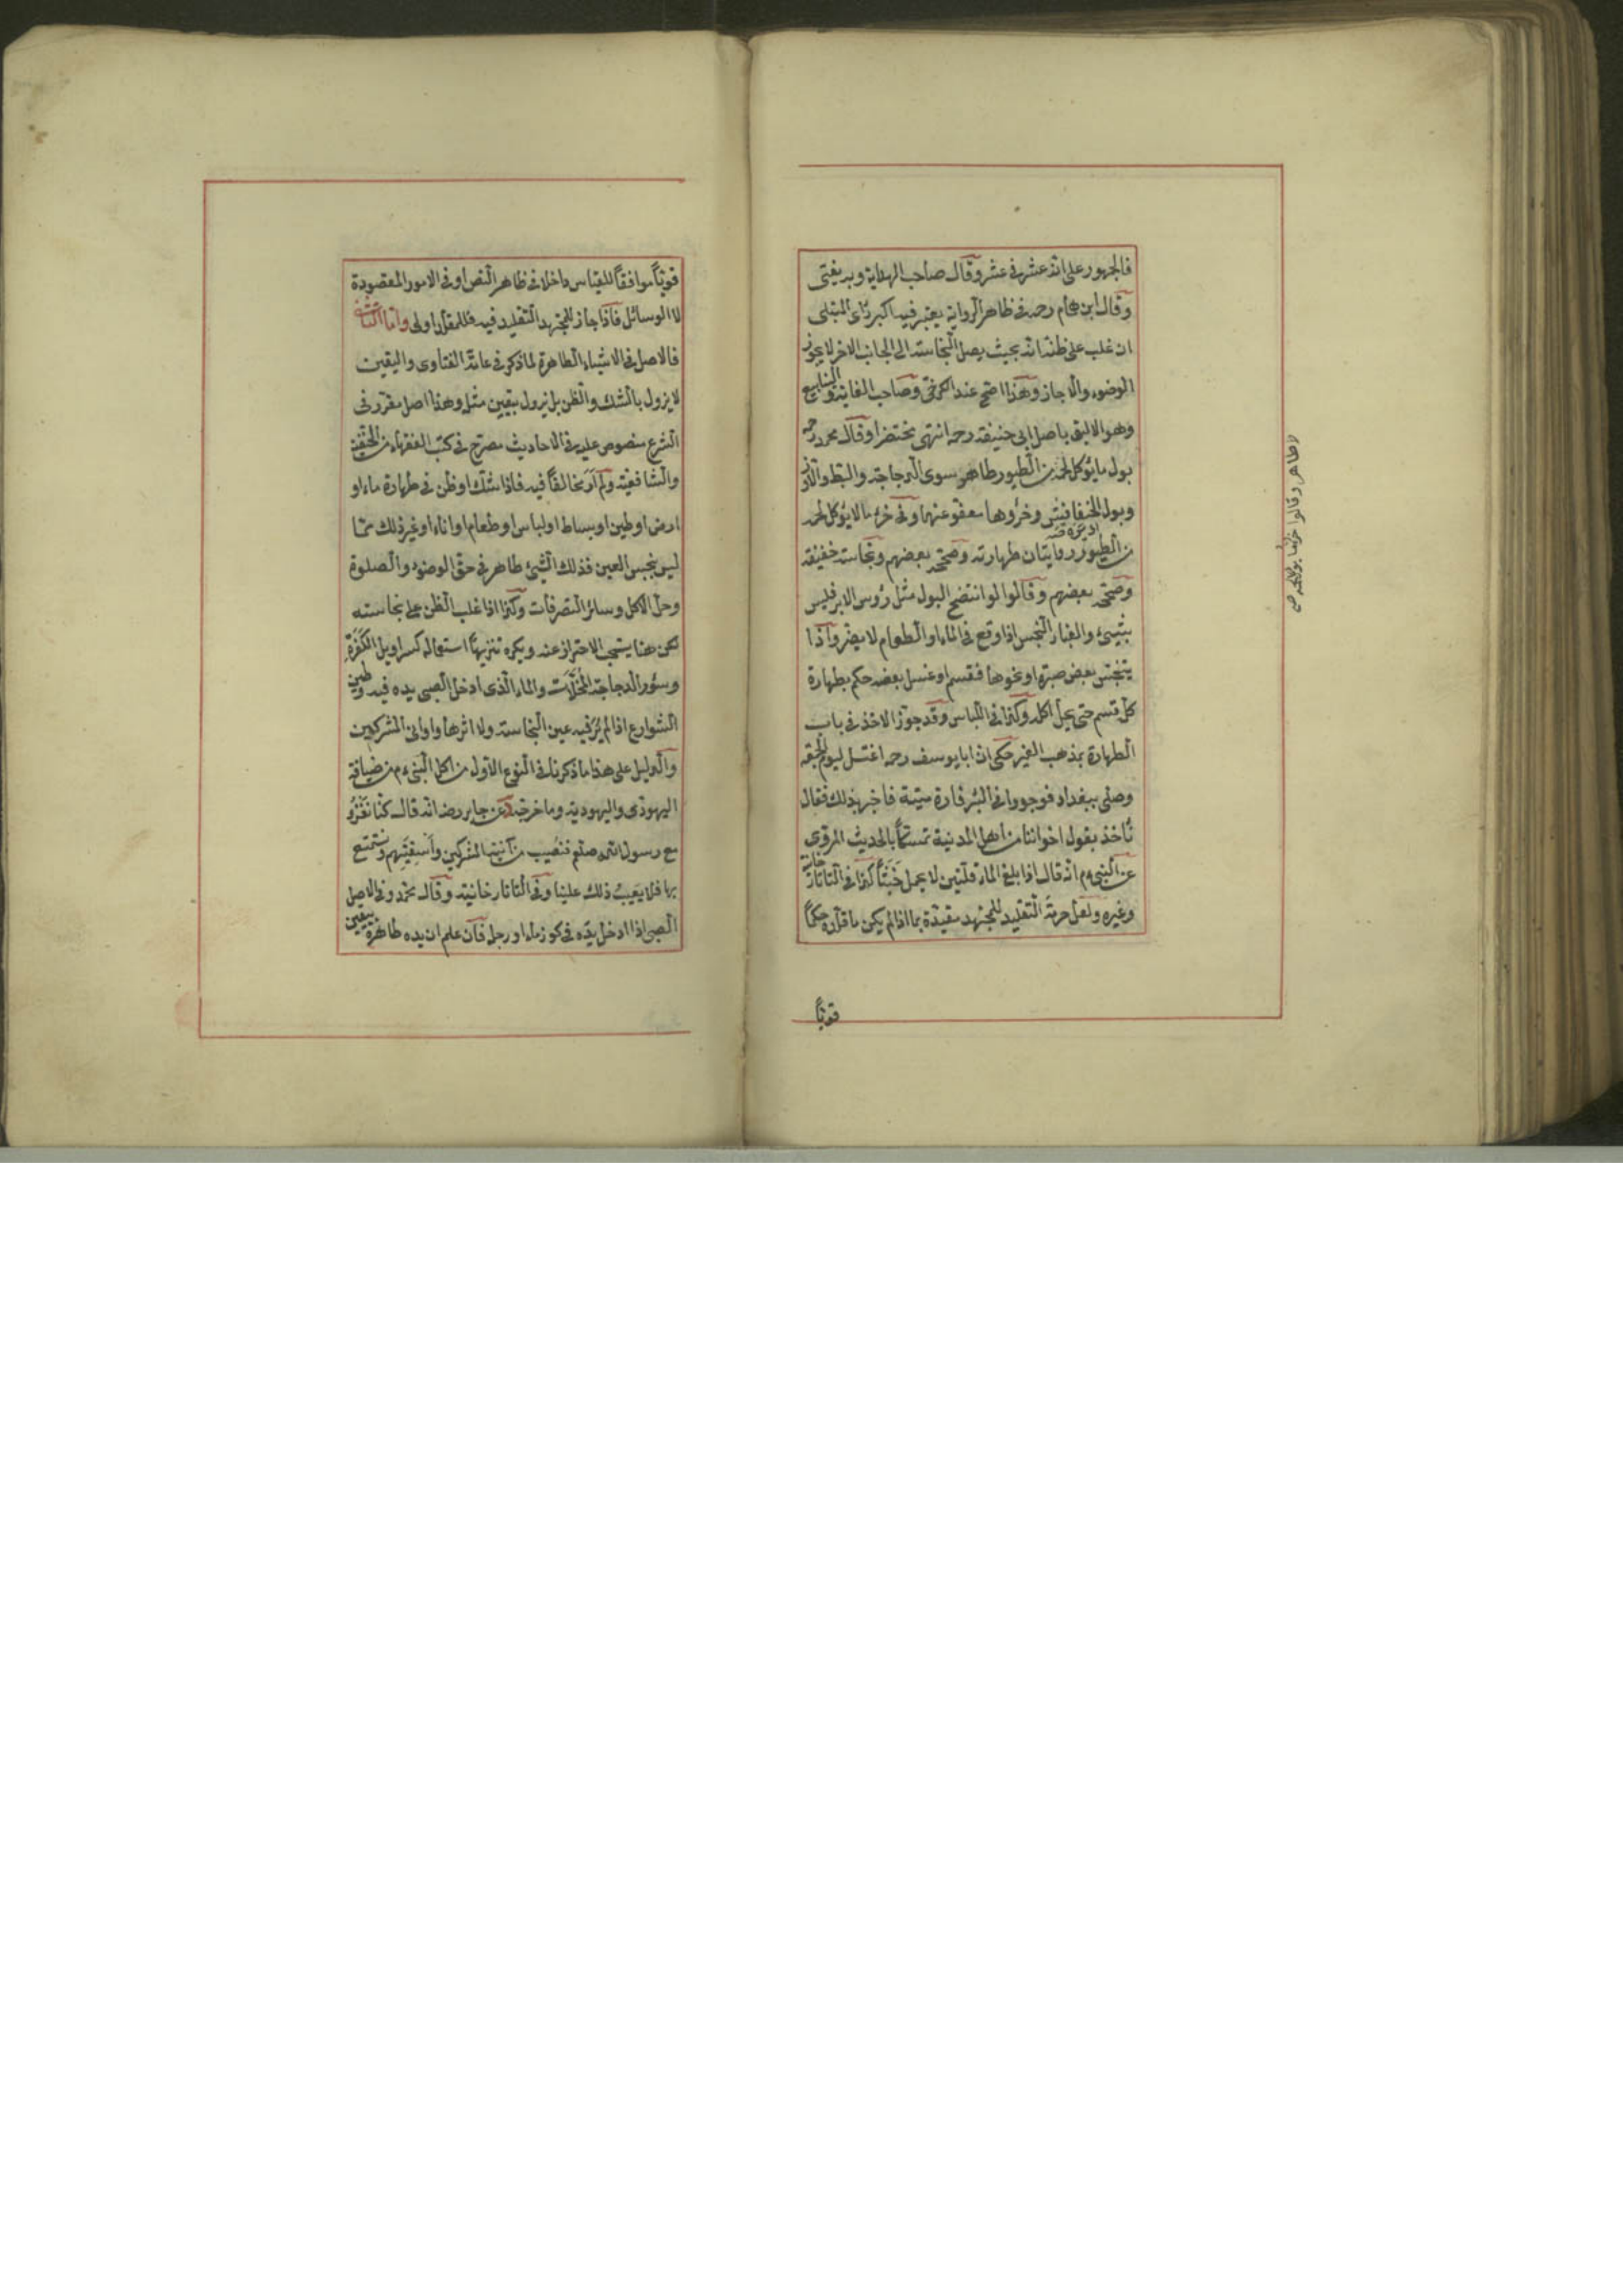 فالجمهور على انه عشر في عشر وقال صاحب الهداية وبه يفتى
وقال ابن همام رحمه في ظاهر الرواية يعتبر فيه اكبر رأى المبتلى
ان غلب على ظنه انه بحيث يصل النجاسة الى الجانب الاخر لا يجوز
الوضوء والا جاز وهذا اصح عند الكرخى وصاحب الغاية والينابيع
وهو الاليق باصل ابى حنيفة رحمه انتهى مختصرا وقال محمد رحمه
بول ما يؤكل لحمه من الطيور طاهر سوى الدجاجة والبط والاوز
وبول الخفافيش وخرؤها معفو عنهما وفى خرء ما لا يؤكل لحمه
من الطيور روايتان طهارته وصححه بعضهم ونجاسته خفيفة
وصححه بعضهم وقالوا لو انتضح البول مثل رؤس الابر فليس
بشيئ والغبار النجس اذا وقع فى الماء او الطعام لا يضر واذا
يتنجس بعض صبرة او نحوها فقسم او غسل بعضه حكم بطهارة
كل قسم حتى يحل اكله وكذا فى اللباس وقد جوز الاخذ فى باب
الطهارة بمذهب الغير حكى ان ابا يوسف رحمه اغتسل ليوم الجمعة
وصلى ببغداد فوجدوا فى البئر فارة ميتة فاخبر بذلك فقال
نأخذ بقول اخواننا من اهل المدينة تمسكا بالحديث المروى
عن النبى ءم انه قال اذا بلغ الماء قلتين لا يحمل خبثا كذا فى التاتارخانية
وغيره ولعل حرمة التقليد للمجتهد مقيدة بما اذا لم يكن ما قلده حكما
قويا
لا طاهر وقالوا
قويا موافقا للقياس داخلا فى ظاهر النص او فى الامور المقصودة
لا الوسائل فاذا جاز للمجتهد التقليد فيه فللمقلد اولى واما الثالث
فالاصل فى الاشياء الطاهرة لما ذكر فى عامة الفتاوى واليقين
لا يزول بالشك والظن بل يزول بيقين مثله وهذا اصل مقرر فى
الشرع منصوص عليه فى الاحاديث مصرح فى كتب الفقهاء من الحنفية
والشافعية ولم ار مخالفا فيه فاذا شك او ظن فى طهارة ماء او
ارض او طين او بساط او لباس او طعام او اناء او غير ذلك مما
ليس بنجس العين فذلك الشيئ طاهر فى حق الوضوء والصلوة
وحل الاكل وسائر التصرفات وكذا اذا غلب الظن على نجاسته
لكن هنا يستحب الاحتراز عنه ويكره تنزيها استعماله كسراويل الكفرة
وسؤر الدجاجة المخلات والماء الذى ادخل الصبى يده فيه وطين
الشوارع اذا لم ير فيه عين النجاسة ولا اثرها واوانى المشركين
والدليل على هذا ما ذكرنا فى النوع الاول من اكل النبى ءم من ضيافة
اليهودى واليهودية وما خرجه د عن جابر رضه انه قال كنا نغزو
مع رسول الله صلعم فنصيب من آنية المشركين واسقيتهم ونستمتع
بها فلا يعيب ذلك علينا وفى التاتارخانية وقال محمد فى الاصل
الصبى اذا ادخل يده فى كوز ماء او رجله فان علم ان يده طاهرة بيقين